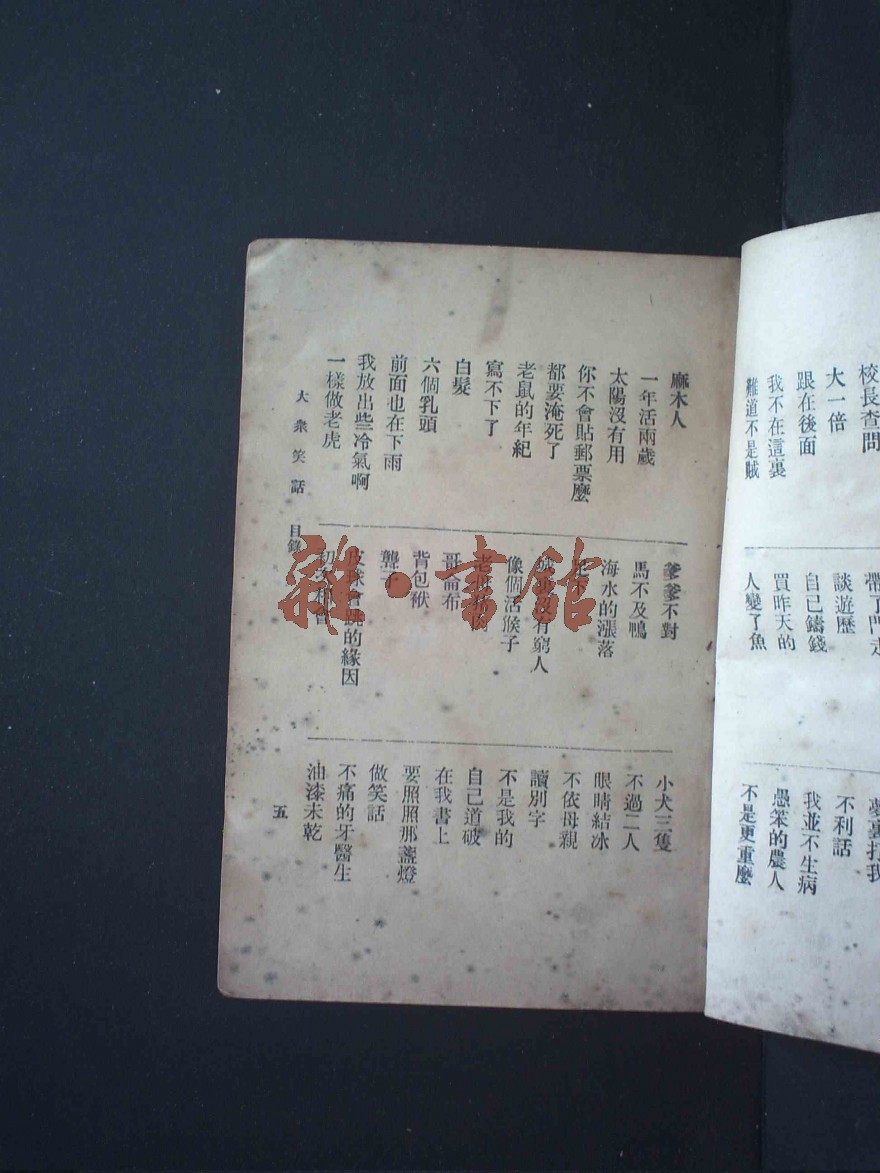 校長查問
大一倍
跟在後面
我不在這裏
難道不是賊
帶了門走
談遊歷
自己鑄錢
買昨天的
人變了魚
不利話
我並不生病
愚笨的農人
不是更重麼
麻木人
一年活兩歲
太陽沒有用
你不會貼郵票麼
都要淹死了
老鼠的年紀
寫不下了
白髮
六個乳頭
前面也在下雨
我放出些冷氣啊
一樣做老虎
爹爹不對
馬不及鴨
海水的漲落
有窮人
像個活猴子
哥崙布
背包袱
聾子
皮球會跳的緣因
小犬三隻
不過二人
眼睛結冰
不依母親
讀別字
不是我的
自己道破
在我書上
要照照那盞燈
做笑話
不痛的牙醫生
油漆未乾
大衆笑話 目錄
五
雜·書館